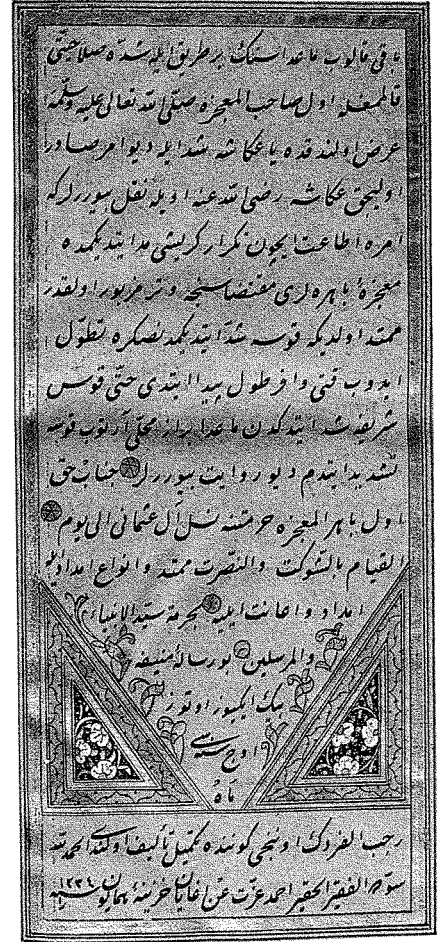 باقی قالوب ماعداسنك بر طریق ایله شده صلاحیتی
قالمغله اول صاحب المعجزه صلی الله تعالی علیه وسلمه
عرض اولندقده یا عكاشه شد ایله دیو امر صادر
اولیجق عكاشه رضی الله عنه اویله نقل بیوررلركه
امره اطاعت ایچون تكرار كریشی مد ایتدیكمده
معجزۀ باهره لری مقتضاسنجه وتر مزبور اولقدر
ممتد اولدیكه قوسه شد ایتدیكمدنصكره تطول
ایدوب قتی وافر طول پیدا ایتدی حتی قوس
شریفه شد ایتدكدن ماعدا براز محلی آرتوب قوسه
تشدید ایتدم دیو روایت بیوررلر جناب حق
اول باهر المعجزه حرمتنه نسل آل عثمانی الی یوم
القیام بالشوكت والنصرت ممتد وانواع امداد ایله
امداد واعانت ایلیه بحرمة سید الانبیاء
والمرسلین بو رسالۀ منیفه
بیك ایكیوز اوتوز
اوچ سنه سی
ماه
رجب الفردك كوننده تكمیل تألیف اولندی الحمد لله
سوده الفقیر الحقیر احمد عزت عن اغایان خزینۀ همایون سنه